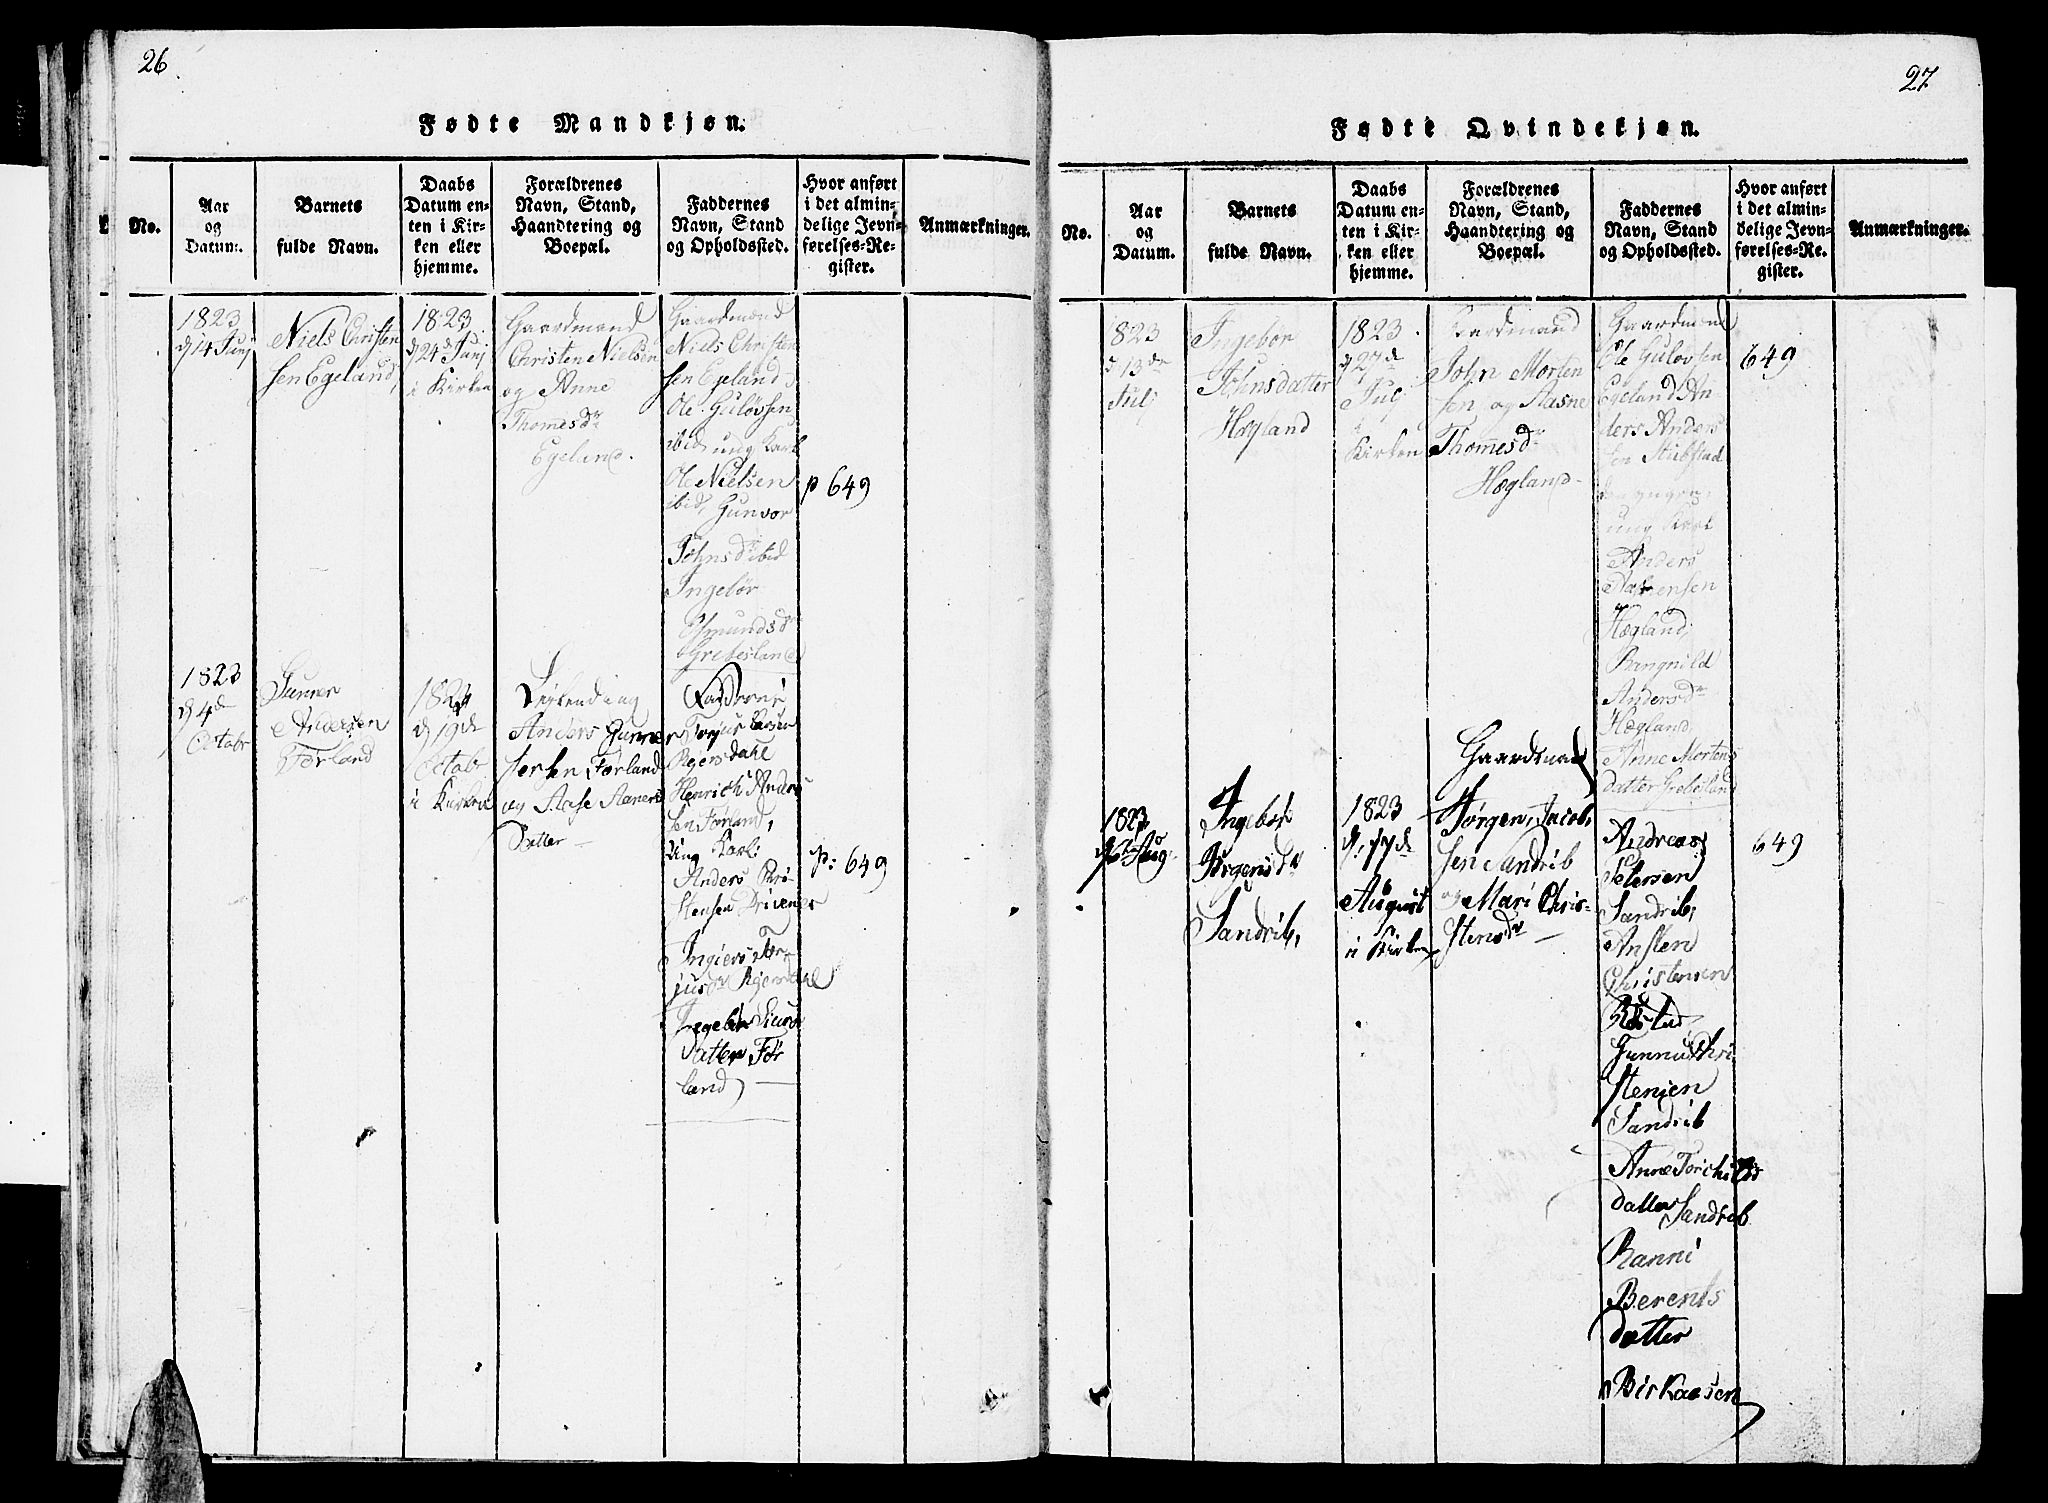 26
Fødte Mandkjøn.
No.
Aar
og
Datum.
Barnets
fulde Navn.
Daabs
Datum en-
ten i Kir-
ken eller
hjemme.
Forældrenes
Navn, Stand,
Haandtering og
Boepæl.
Faddernes
Navn, Stand
og Opholdssted.
Hvor anført
i det almin-
delige Jevn-
førelses-Re-
gister.
Anmærkninger.
1823
d 14 Junj
Niels Christen
sen Egeland,
1823
d 24d Junj
i Kirken
Gaardmand
Christen Nielsen
og Anne
Thomesdr
Egeland.
Gaardmænd
Niels Christen
sen Egeland,
Ole Guløvsen
ibid, ung Karl
Ole Nielsen
ibid, Gunvor
Johnsdr ibid
Ingebør
Osmundsdr
Grebesland
p 649
1823
d 4de
Octobr
Gunner
Andersen
Førland
1823
d 19de
Octobr
i Kirken
Leylending
Anders Gunner
sen Førland
og Aase Aanens
Datter
Fadderne
Torjus
Rjersdahl
Henrich Anders
sen Førland,
Ung Karl:
Anders Kri-
stensen Drivenes
Ingiers Tor-
jusdr Rjersdahl
Ingebør
Datter Før
land
p: 649
27
Fødte Qvindekjøn.
No.
Aar
og
Datum.
Barnets
fulde Navn.
Daabs
Datum en-
ten i Kir-
ken eller
hjemme.
Forældrenes
Navn, Stand,
Haandtering og
Boepæl.
Faddernes
Navn, Stand
og Opholdssted.
Hvor anført
i det almin-
delige Jevn-
førelses-Re-
gister.
Anmærkninger.
1823
d 13de
Julj
Ingebor
Johnsdatter
Hægland
1823
d 27d
Julj
i
Kirken
Gaardmand
John Morten
sen og Aasne
Thomesdr
Hægland
Gaardmænd
Ole Guløvsen
Egeland An
ders Anders
sen Stubstad
ung Karl
Anders
Hægland,
Rangnild
Andersdr
Hægland,
Anne Mortens
datter Grebesland
649
1823
Aug
Ingebor
Jørgensdr
Sandrib,
1823
d. 17de
August
i Kirken
Gaardmand
Jørgen Jacob,
sen Sandrib
og Mari Chris-
stensdr
Andreas
Petersen
Sandrib,
Ansten
Christensen
Gunnu Chri
stensen
Sandrib
Anne Torchilds
datter Sandrib
Ranni
Berents
datter
Birkaasen
649